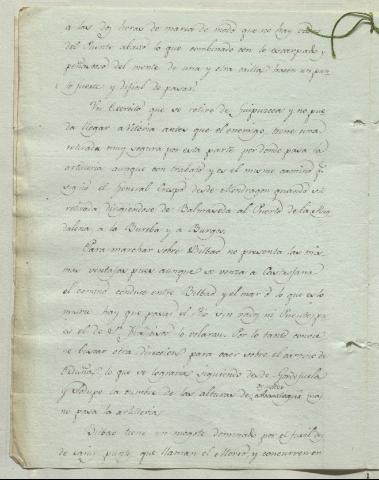 a las dos horas de marea de modo que no hay
del Puente abaxo lo que combinado con lo escarpado y
peñascoso del monte de una y otra orilla hacen un pun
to fuerte y dificil de pasar.
Un Exercito que se retire de Guipuzcoa y no pue
da llegar a Vitoria antes que el enemigo, tiene una
retirada muy segura por esta parte por donde pasa la
artilleria aunque con trabajo y es el mismo camino q.
siguió el General Crespo desde Mondragon quando su
retirada dirigiendose de Balmaseda al Puerto de la Mag
dalena, a la Bureba y a Burgos.
Para marchar sobre Bilbao no presenta las mis
mas ventajas pues aunque se venza a Castrejana
el camino conduce entre Bilbao y el mar o lo que es lo
mismo hay que pasar el Rio sin vado ni Puente, pu
es el de Sn. lo volaran. Por lo tanto convie
ne buscar otra direccion para caer sobre el camino de
Orduña, lo que se lograra siguiendo desde Gordejuela
y Llodio la cumbre de las alturas de
no pasa la artilleria.
Bilbao tiene un monte dominado por el fusil
de cuyo punto que llaman el Morro y concurren en